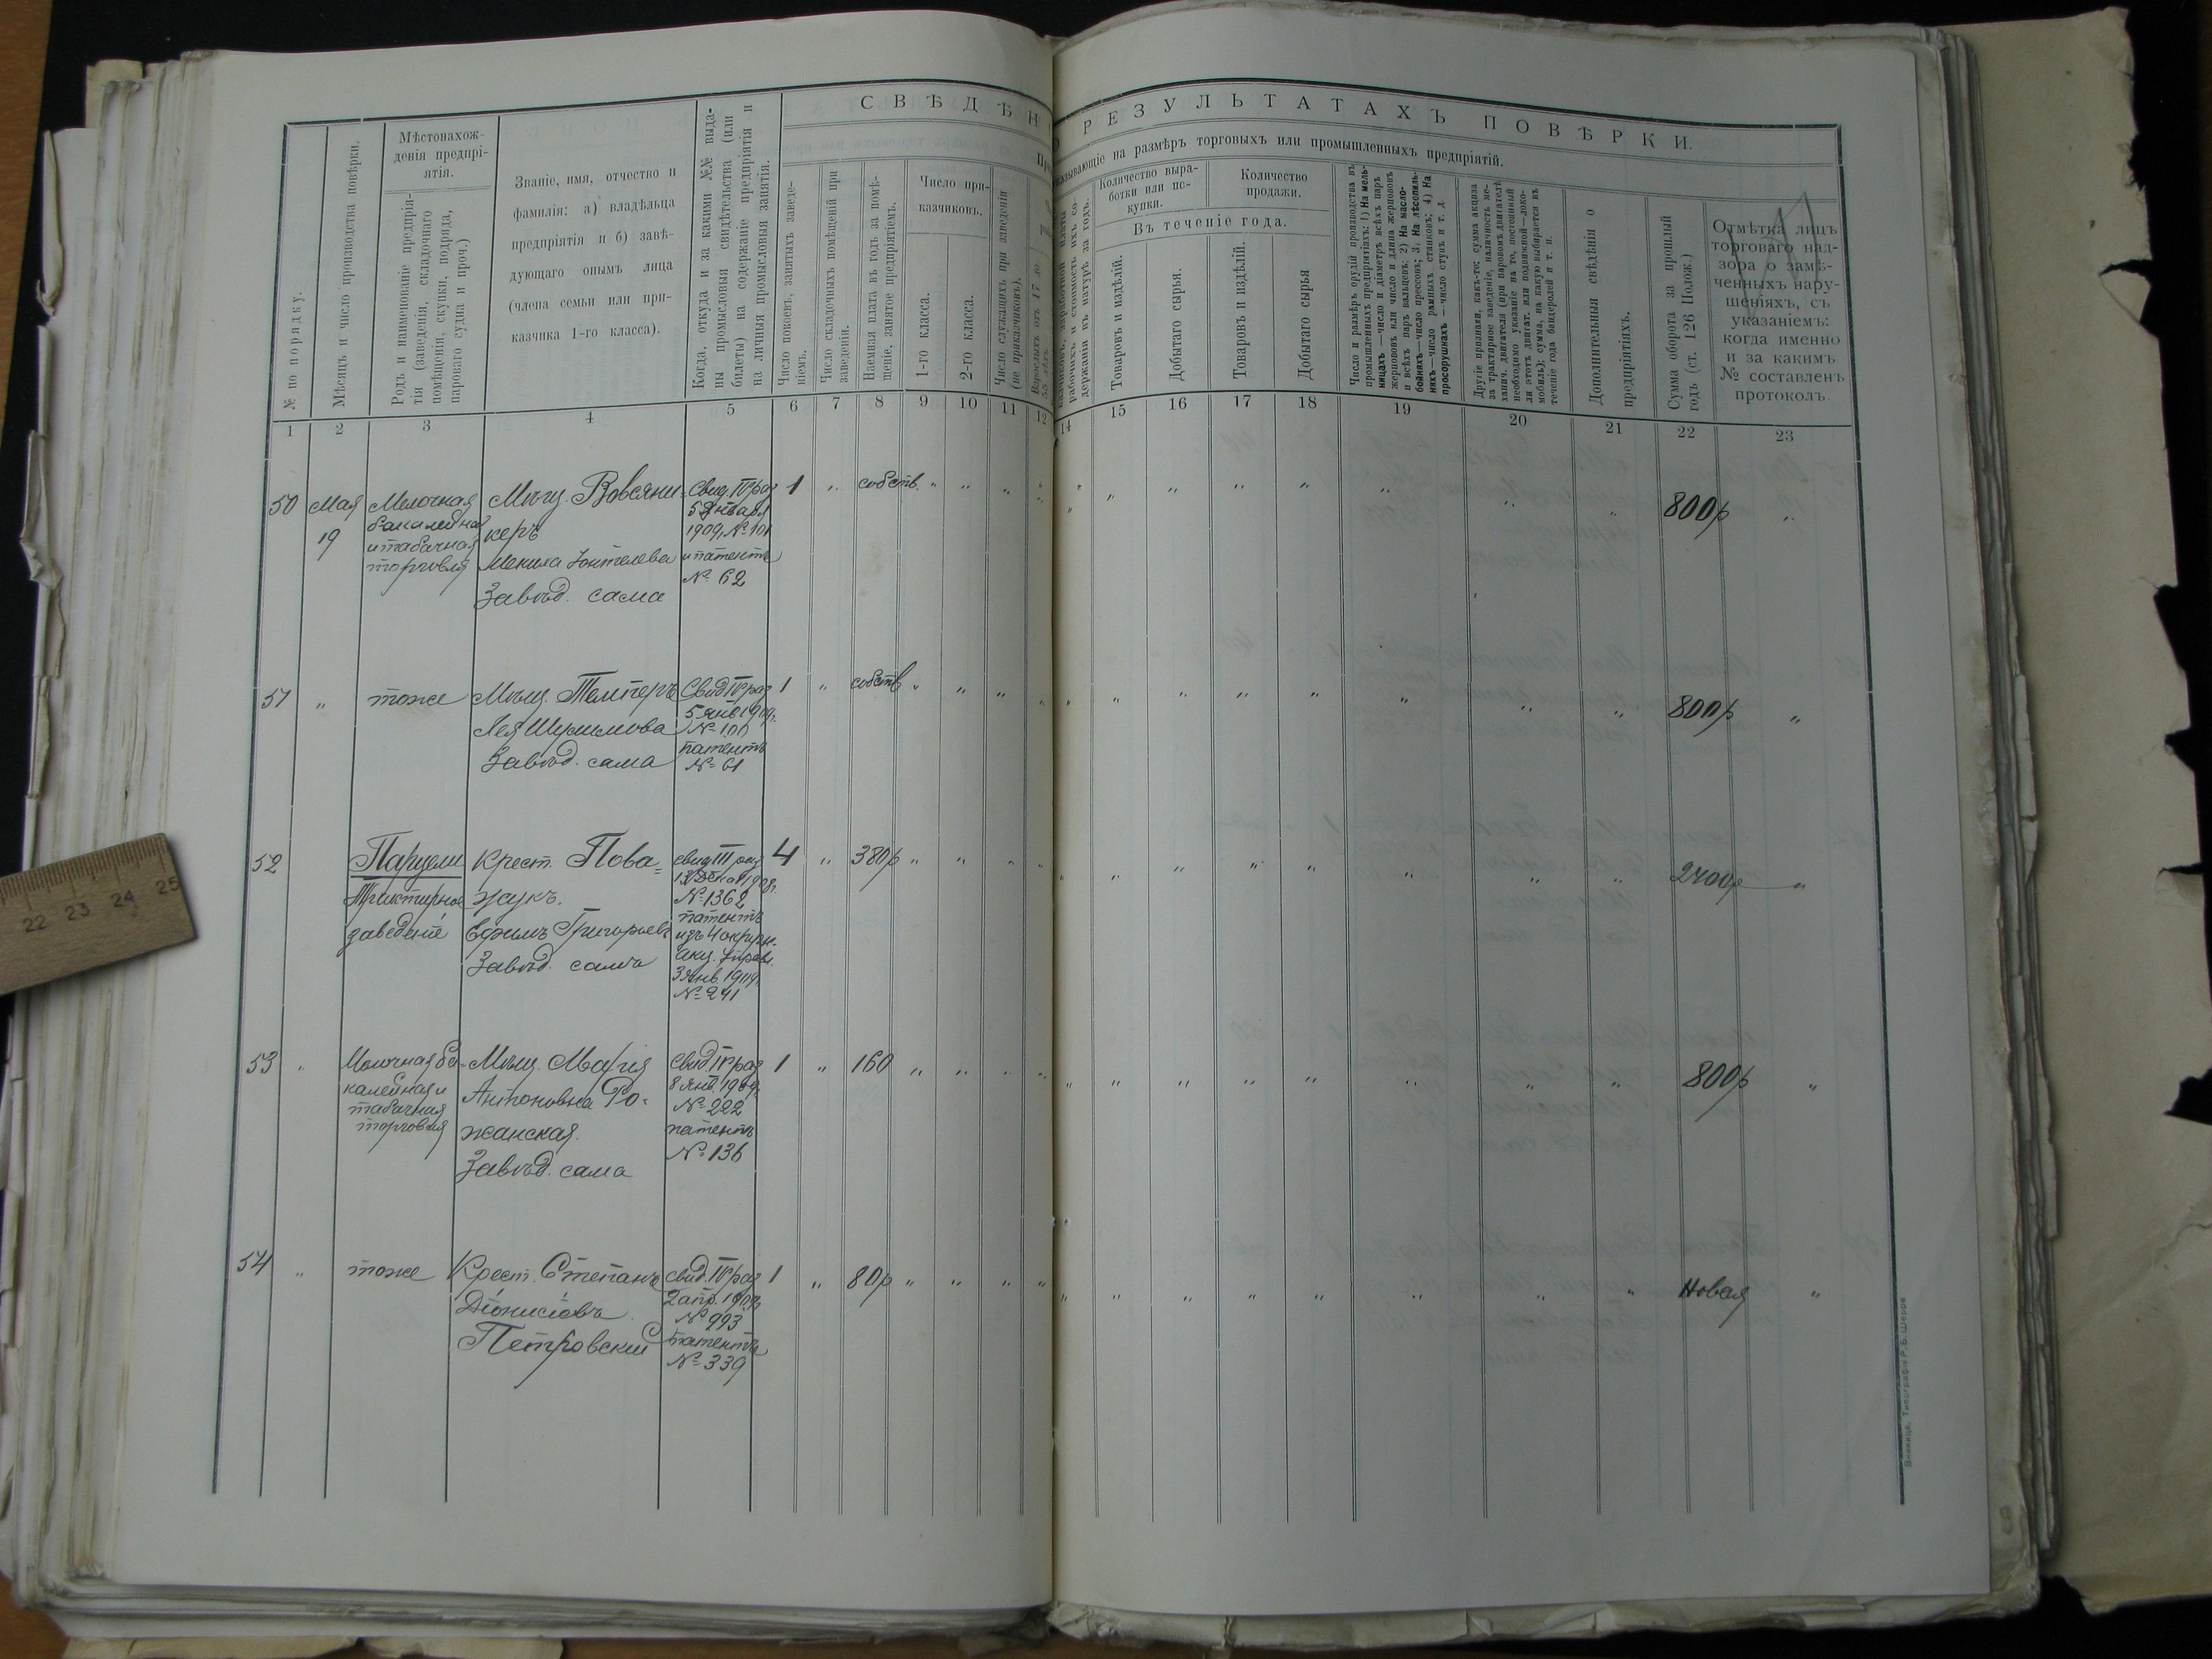 СВѢДѢН
О РЕЗУЛЬТАТАХЪ ПОВѢРКИ.
казывающіе на размѣръ торговыхъ или промышленныхъ предпріятій.
№ по порядку.
Мѣсяцъ и число производства повѣрки.
Мѣстонахож-
денія предпрі-
ятія.
Родъ и наименованіе предпрія-
тія (заведенія, складочнаго
помѣщенія, скупки, подряда,
пароваго судна и проч.)
Званіе, имя, отчество и
фамилія: а) владѣльца
предпріятія и б) завѣ-
дующаго онымъ лица
(члена семьи или при-
казчика 1-го класса).
Когда, откуда и за какими №№ выда-
ны промысловыя свидѣтельства (или
билеты) на содержаніе предпріятія и
на личныя промысловыя занятія.
Число покоевъ, занятыхъ заведе-
ніемъ.
Число складочныхъ помѣщеній при
заведеніи.
Наемная плата въ годъ за помѣ-
щеніе, занятое предпріятіемъ.
Число при-
казчиковъ.
1-го класса.
2-го класса.
Число служащихъ при заведеніи
(не приказчиковъ).
Количество выра-
ботки или по-
купки.
Количество
продажи.
Въ теченіе года.
Товаровъ и издѣлій.
Добытаго сырья.
Товаровъ и издѣлій.
Добытаго сырья
Число и размѣръ орудій производства въ
промышленныхъ предпріятіяхъ: 1) На мель-
ницахъ—число и діаметръ всѣхъ паръ
жернововъ или число и длина жернововъ
и всѣхъ паръ вальцевъ: 2) На масло-
бойняхъ—число прессовъ; 3) На лѣсопиль-
няхъ—число рамныхъ станковъ; 4) На
просорушкахъ—число ступъ и т. д.
Другіе признаки, какъ-то: сумма акциза
за трактирное заведеніе, наличность ме-
ханич. двигателя (при паровомъ двигателѣ
необходимо указаніе на то, постоянный
ли этотъ двигат. или подвижной—локо-
мобиль); сумма, на какую выбирается въ
теченіе года бандеролей и т. п.
Дополнительныя свѣдѣнія о
предпріятіяхъ.
Сумма оборота за прошлый
годъ (ст. 126 Полож.)
Отмѣтка лицъ
торговаго над-
зора о замѣ-
ченныхъ нару-
шеніяхъ, съ
указаніемъ:
когда именно
и за какимъ
№ составленъ
протоколъ.
1 2 3 4 5 6 7 8 9 10 11 12 14 15 16 17 18 19 20 21 22 23
50 Мая Мелочная Мѣщ. Вовсяни- Свид. IV раз 1 " собств. " " " 800р "
19 бакалейная керъ 5 Января
и табачная 1909, № 101
торговля и патентъ
Завѣд. сама № 62
51 " тоже Мѣщ. Темперъ Свид IV раз 1 " собств " " " 800р "
Лея Шулимова 5 янв 1909г.
№ 100
Завѣд. сама патентъ
№ 61
52 Паруели Крест. Пова- свид III раз 4 " 380р " " " 2400р "
Трактирное жукъ. 1908г.
№ 1362
заведеніе Ефимъ Григорьевъ патентъ
Завѣд. самъ изъ 4 окружн.
акц. Управл.
3 янв. 1909
№ 241
53 " Мелочная ба- Мѣщ. Марія Свид IV раз 1 " 160 " " " 800р "
калейная и Антоновна Ро- 8 янв. 1909
табачная № 222
торговля жанская. патентъ
Завѣд. сама № 136
54 " тоже Крест. Степанъ свид. IV раз 1 " 80р " " " новая "
Діонисіевъ 2 апр. 1909
Петровскій № 993
патентъ
№ 339
22 23 24 25
Винница, Типографія Р. Б. Шерра